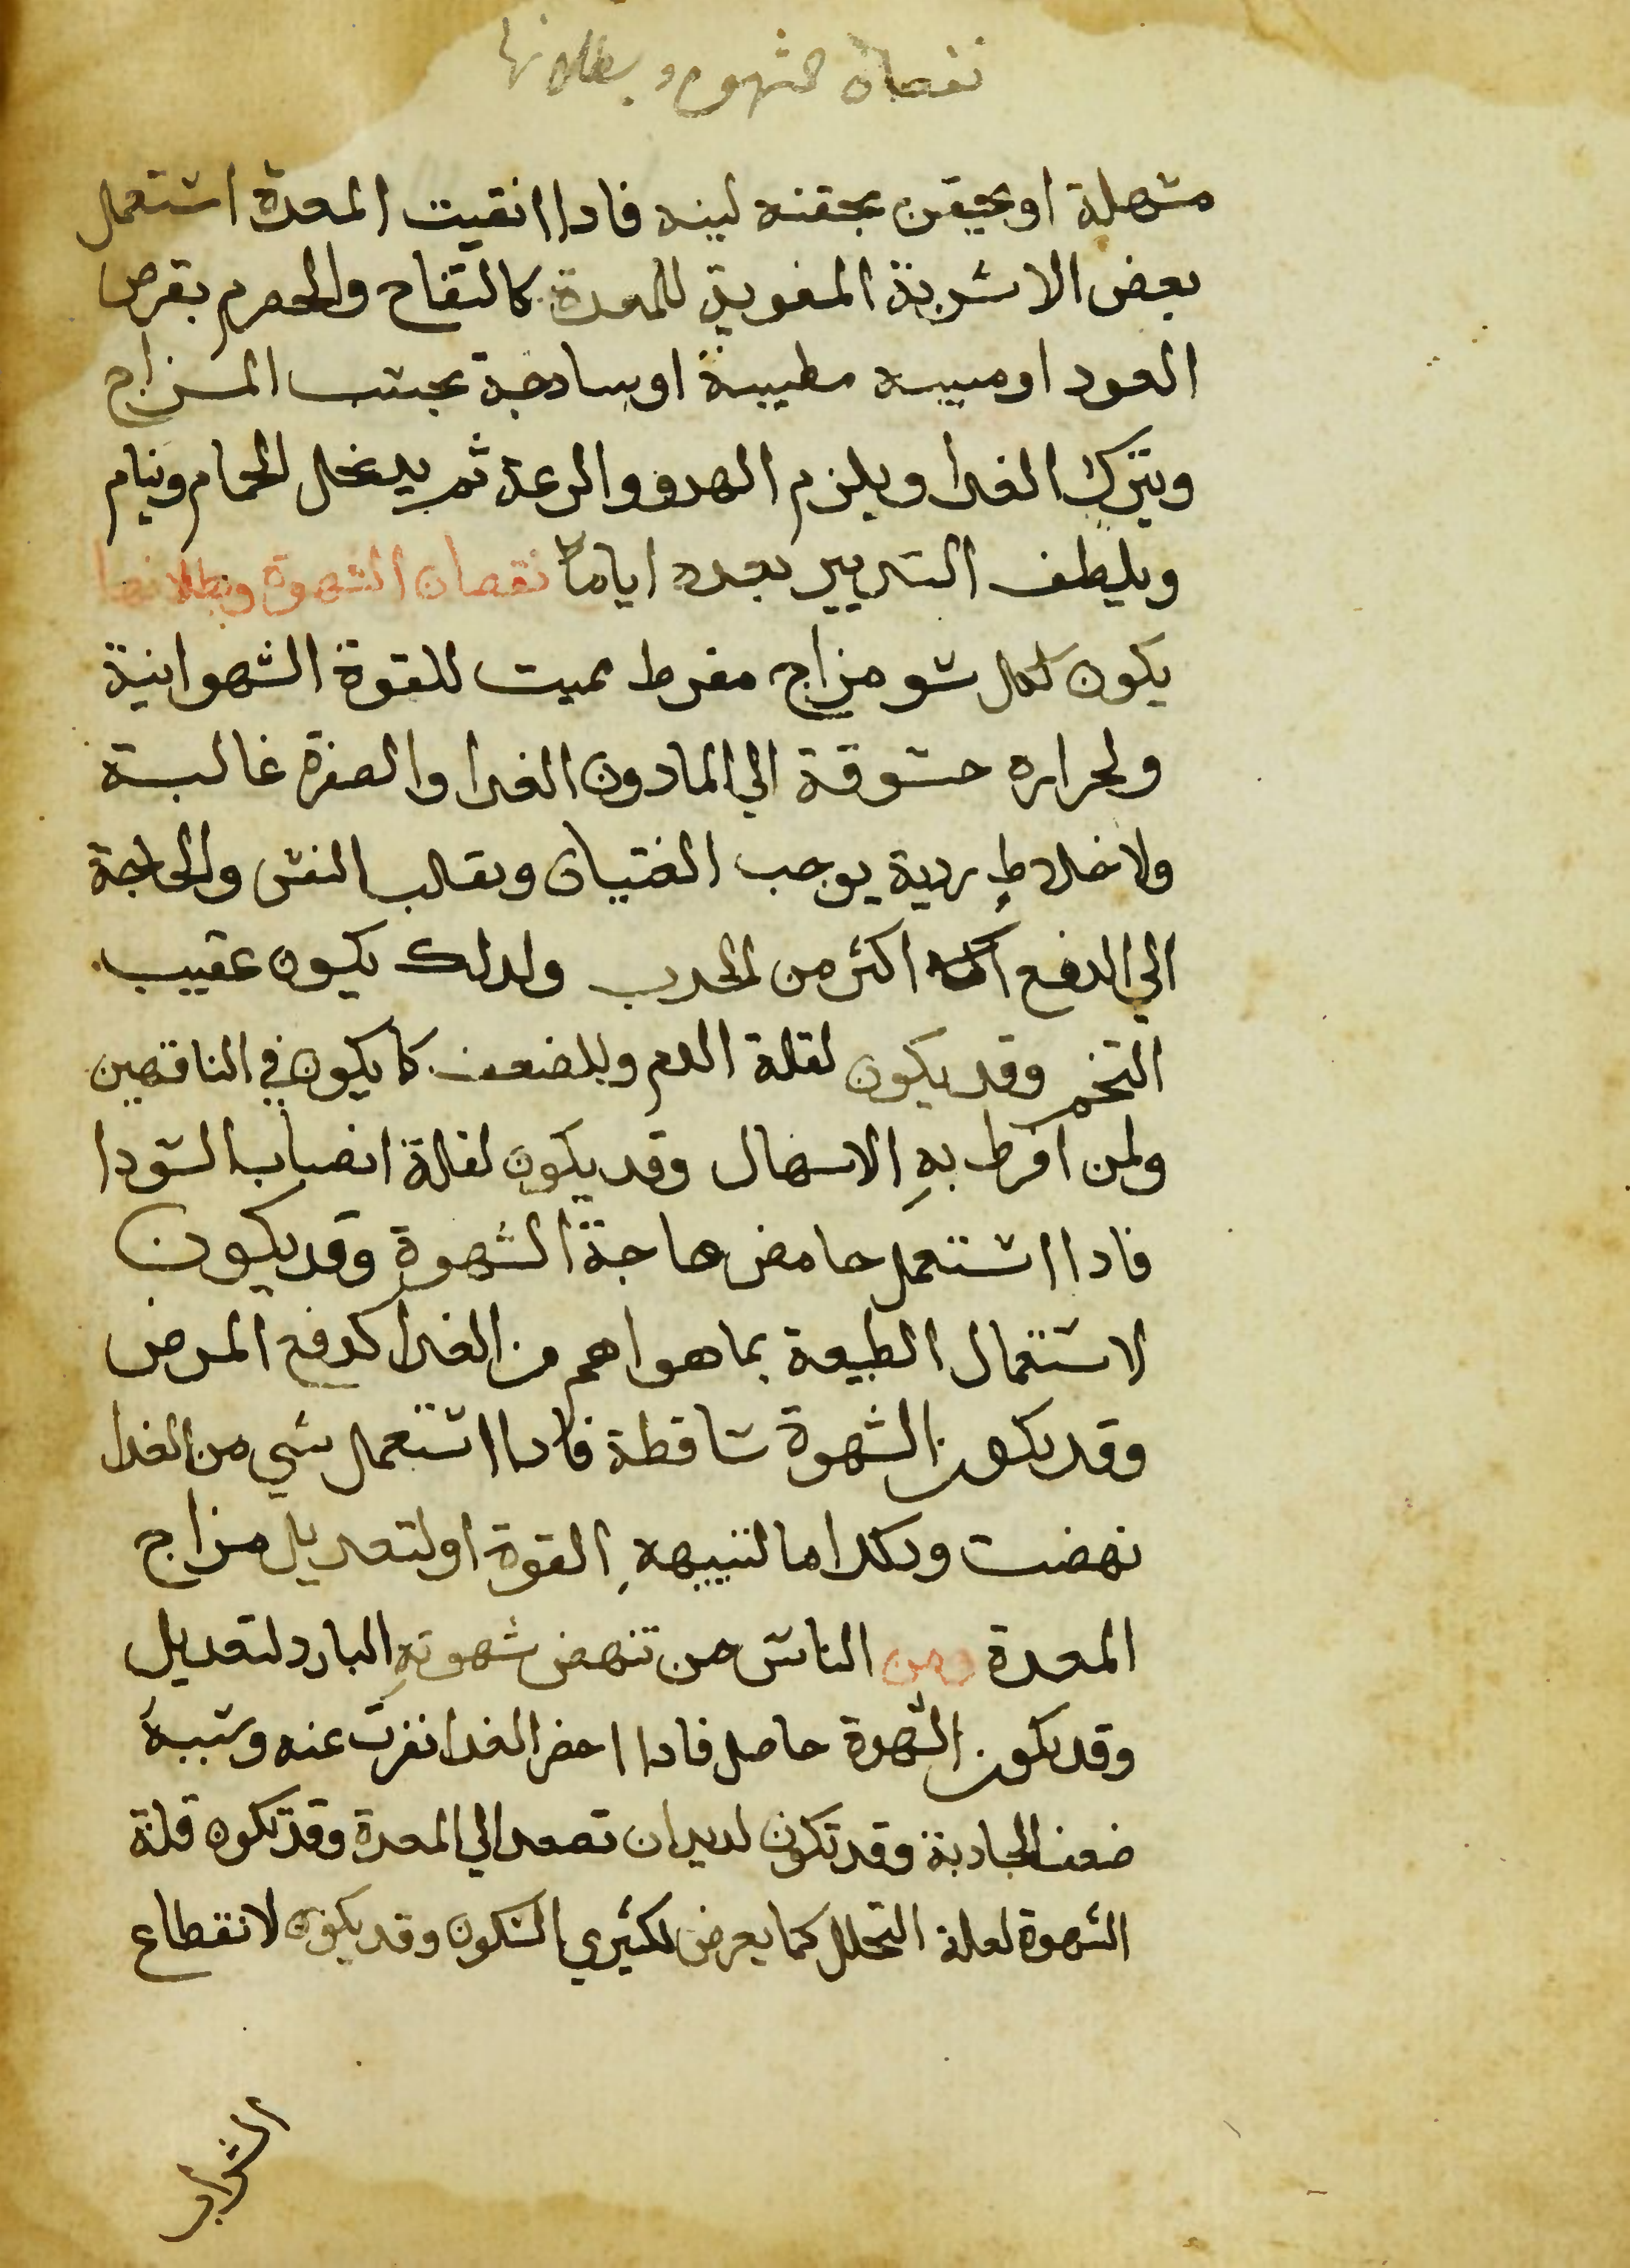 نقصان الشهوه وبطلانها
مسهلة او يحقن بحقنه لينه فادا انقيت المعدة استعمل
بعض الاشربة المقوية للمعدة كالتفاح والحصرم بقرص
العود او ميبه مطيبة او سادجة بحسب المزاج
ويترك الغدا ويلزم الهدو والدعة ثم يدخل الحمام وينام
ويلطف التدبير بعده اياما نقصان الشهوة وبطلانها
يكون لكل سو مزاج مفرط مميت للقوة الشهوانية
ولحراره مشوقة الي الما دون الغدا والصفرة غالبة
ولاخلاط ردية يوجب الغتيان وتقلب النفس والحاجة
الي الدفع اكثر من الجدب ولدلك يكون عقيب
التخم وقد يكون لقلة الدم وللضعف كما يكون في الناقهين
ولمن افرط به الاسهال وقد يكون لقلة انصباب السودا
فادا استعمل حامض هاجة الشهوة وقد يكون
لاستعمال الطبيعة بما هو اهم من الغدا كدفع المرض
وقد يكون الشهوة ساقطة فادا استعمل شي من الغدا
نهضت ودلك اما لتنبيهه القوة او لتعديل مزاج
المعدة ومن الناس من تنهض شهوته البارد لتعديل
وقد يكون الشهوة حاصل فادا احضر الغدا نفرت عنه وسببه
ضعف الجادبة وقد تكون لديدان تصعد الي المعدة وقد تكون قلة
الشهوة لقلة التحلل كما يعرض لكثيري السكون وقد يكون لانقطاع